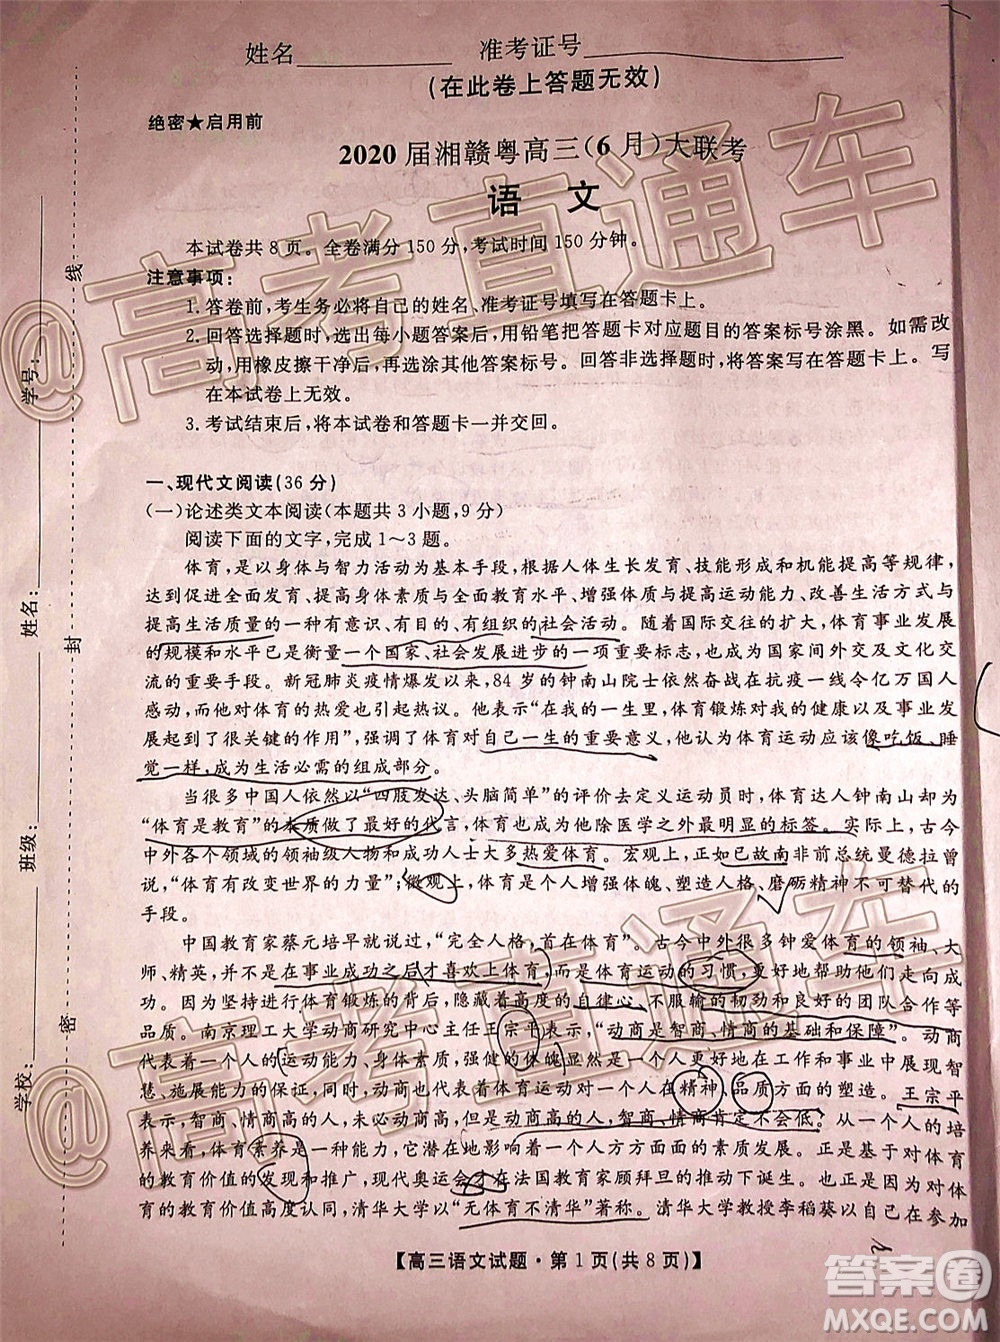 姓名 准考证号
(在此卷上答题无效)
绝密★启用前
2020 届湘赣粤高三(6 月)大联考
语 文
本试卷共 8 页。全卷满分 150 分,考试时间 150 分钟。
注意事项:
1. 答卷前,考生务必将自己的姓名、准考证号填写在答题卡上。
2. 回答选择题时,选出每小题答案后,用铅笔把答题卡对应题目的答案标号涂黑。如需改
动,用橡皮擦干净后,再选涂其他答案标号。回答非选择题时,将答案写在答题卡上。写
在本试卷上无效。
3. 考试结束后,将本试卷和答题卡一并交回。
一、现代文阅读(36 分)
(一)论述类文本阅读(本题共 3 小题,9 分)
阅读下面的文字,完成 1~3 题。
体育,是以身体与智力活动为基本手段,根据人体生长发育、技能形成和机能提高等规律,
达到促进全面发育、提高身体素质与全面教育水平、增强体质与提高运动能力、改善生活方式与
提高生活质量的一种有意识、有目的、有组织的社会活动。随着国际交往的扩大,体育事业发展
的规模和水平已是衡量一个国家、社会发展进步的一项重要标志,也成为国家间外交及文化交
流的重要手段。新冠肺炎疫情爆发以来,84 岁的钟南山院士依然奋战在抗疫一线令亿万国人
感动,而他对体育的热爱也引起热议。他表示“在我的一生里,体育锻炼对我的健康以及事业发
展起到了很关键的作用”,强调了体育对自己一生的重要意义,他认为体育运动应该像吃饭、睡
觉一样,成为生活必需的组成部分。
当很多中国人依然以“四肢发达、头脑简单”的评价去定义运动员时,体育达人钟南山却为
“体育是教育”的本质做了最好的代言,体育也成为他除医学之外最明显的标签。实际上,古今
中外各个领域的领袖级人物和成功人士大多热爱体育。宏观上,正如已故南非前总统曼德拉曾
说,“体育有改变世界的力量”;微观上,体育是个人增强体魄、塑造人格、磨砺精神不可替代的
手段。
中国教育家蔡元培早就说过,“完全人格,首在体育”。古今中外很多钟爱体育的领袖、大
师、精英,并非是在事业成功之后才喜欢上体育,而是体育运动的习惯,帮助他们逐渐走向成
功。因为坚持进行体育锻炼的背后,隐藏着高度的自律心、不服输的韧劲和良好的团队合作等
品质。南京理工大学动商研究中心主任王宗平表示,“动商是智商、情商的基础和保障”。动商
代表着一个人的运动能力、身体素质,强健的体魄显然是一个人更好地在工作和事业中展现智
慧、施展能力的保证,同时,动商也代表着体育运动对一个人在精神、品质方面的塑造。王宗平
表示,智商、情商高的人,动商未必高,但是动商高的人,智商、情商肯定不会低。从一个人的培
养来看,体育素养是一种能力,它潜在地影响一个人方方面面的素质发展。正是因为对体育
的教育价值的发现和推广,现代奥运会才在法国教育家顾拜旦的推动下诞生。也正是因为对体
育的教育价值高度认同,清华大学以“无体育不清华”著称。清华大学教授李稻葵曾在参加
【高三语文试题·第 1 页(共 8 页)】
学校: 班级: 姓名: 学号:
密 封 线
@高考直通车
@高考直通车
答案圈
MXQE.COM